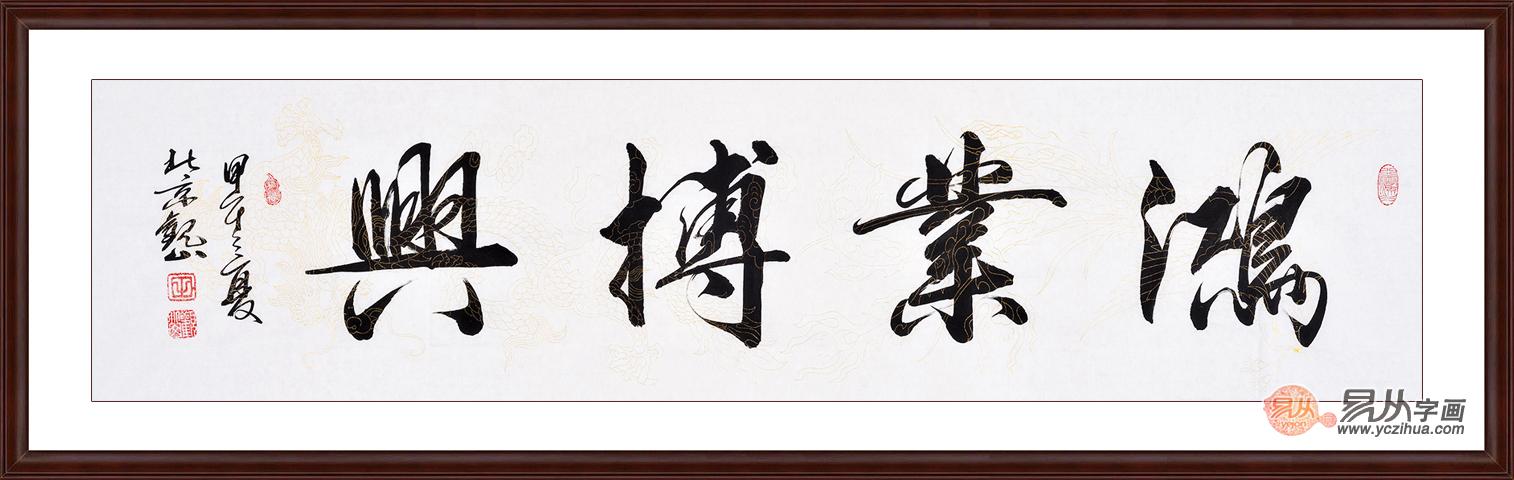 鴻業搏興
甲午之夏
北京觀山
易从
yejon
易从字画
www.yczihua.com